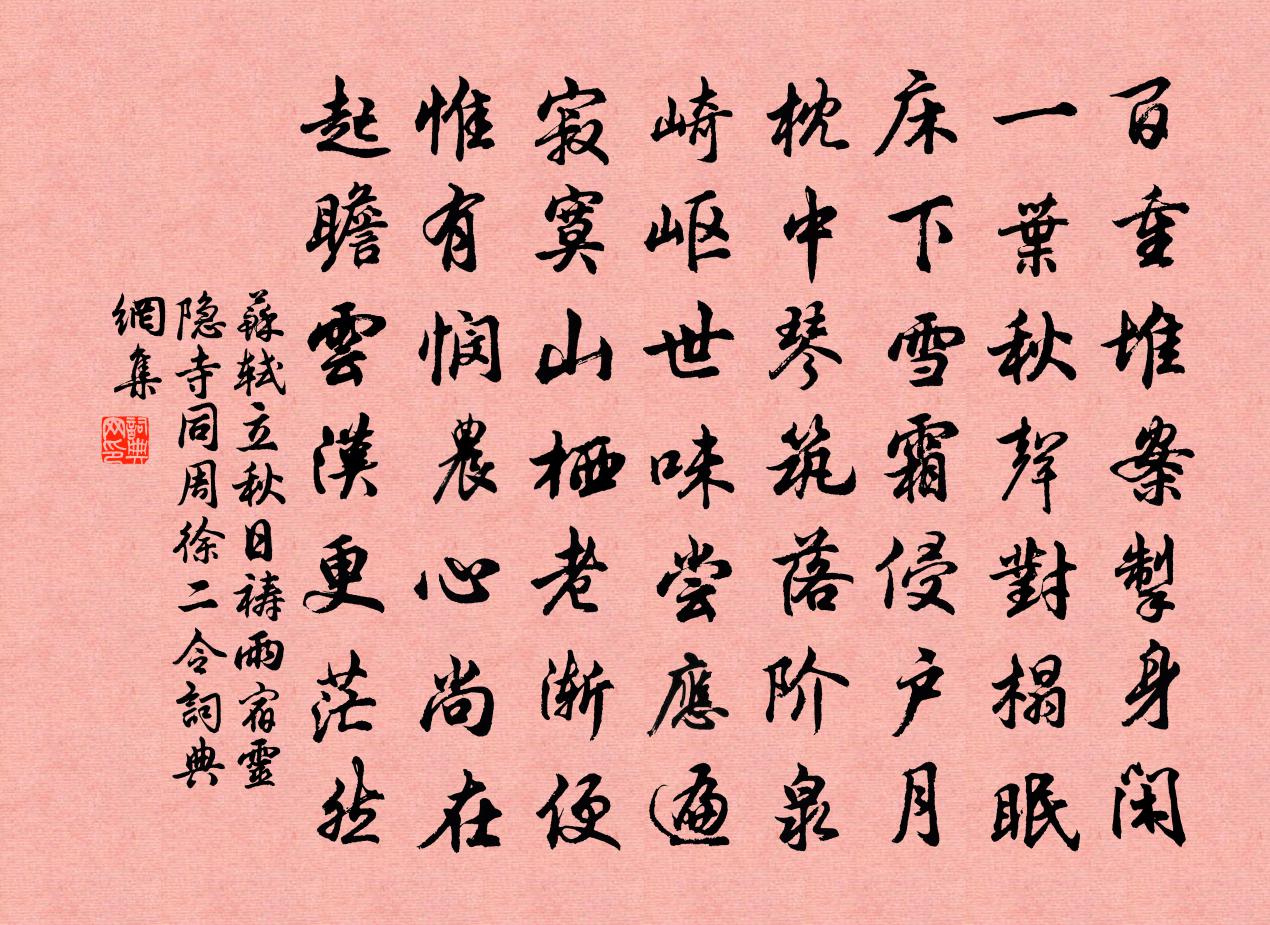 百重堆案掣身閑
一葉秋聲對榻眠
床下雪霜侵户月
枕中琴筑落阶泉
崎岖世味尝應遍
寂寞山栖老渐便
惟有悯農心尚在
起瞻雲漢更茫然
蘇轼立秋日祷雨宿靈
隐寺同周徐二令詞典
網集
詞典
网印